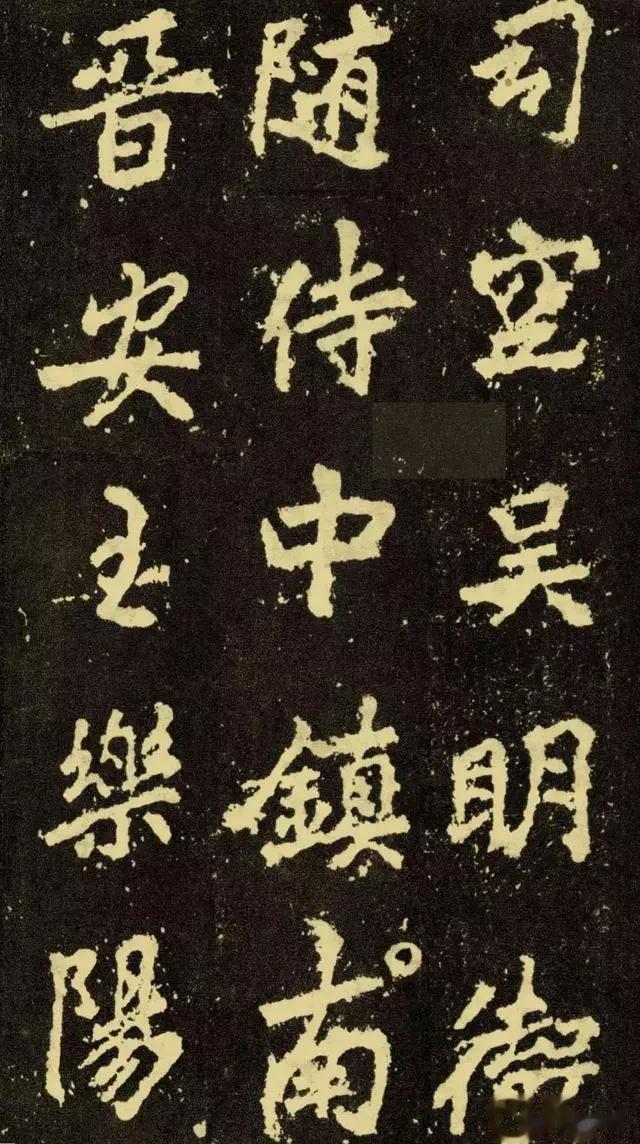 司空吴明
随侍中鎮南
晉安王樂陽